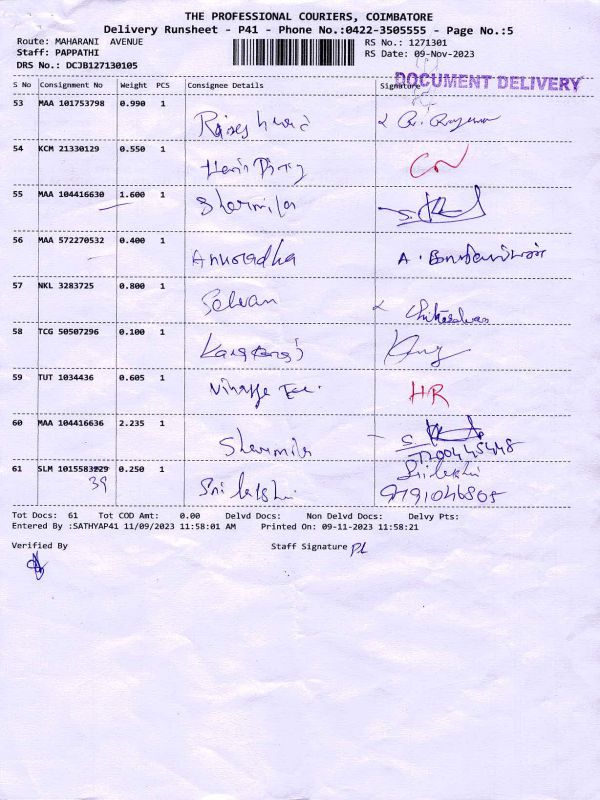 THE PROFESSIONAL COURIERS, COIMBATORE
Delivery Runsheet - P41 - Phone No.:0422-3505555 - Page No.:5
Route: MAHARANI AVENUE RS No.: 1271301
Staff: PAPPATHI RS Date: 09-Nov-2023
DRS No.: DCJB127130105
DOCUMENT DELIVERY
S No Consignment No Weight PCS Consignee Details Signature
53 MAA 101753798 0.990 1
54 KCM 21330129 0.550 1
55 MAA 104416630 1.600 1 Sharmila
56 MAA 572270532 0.400 1 Anuradha
57 NKL 3283725 0.800 1 Selvan
58 TCG 50507296 0.100 1
59 TUT 1034436 0.605 1 HR
60 MAA 104416636 2.235 1 Sharmila
7200445448
61 SLM 1015583229 0.250 1 Srilakshi Srilakshi
39 9791046805
Tot Docs: 61 Tot COD Amt: 0.00 Delvd Docs: Non Delvd Docs: Delvy Pts:
Entered By :SATHYAP41 11/09/2023 11:58:01 AM Printed On: 09-11-2023 11:58:21
Verified By Staff Signature